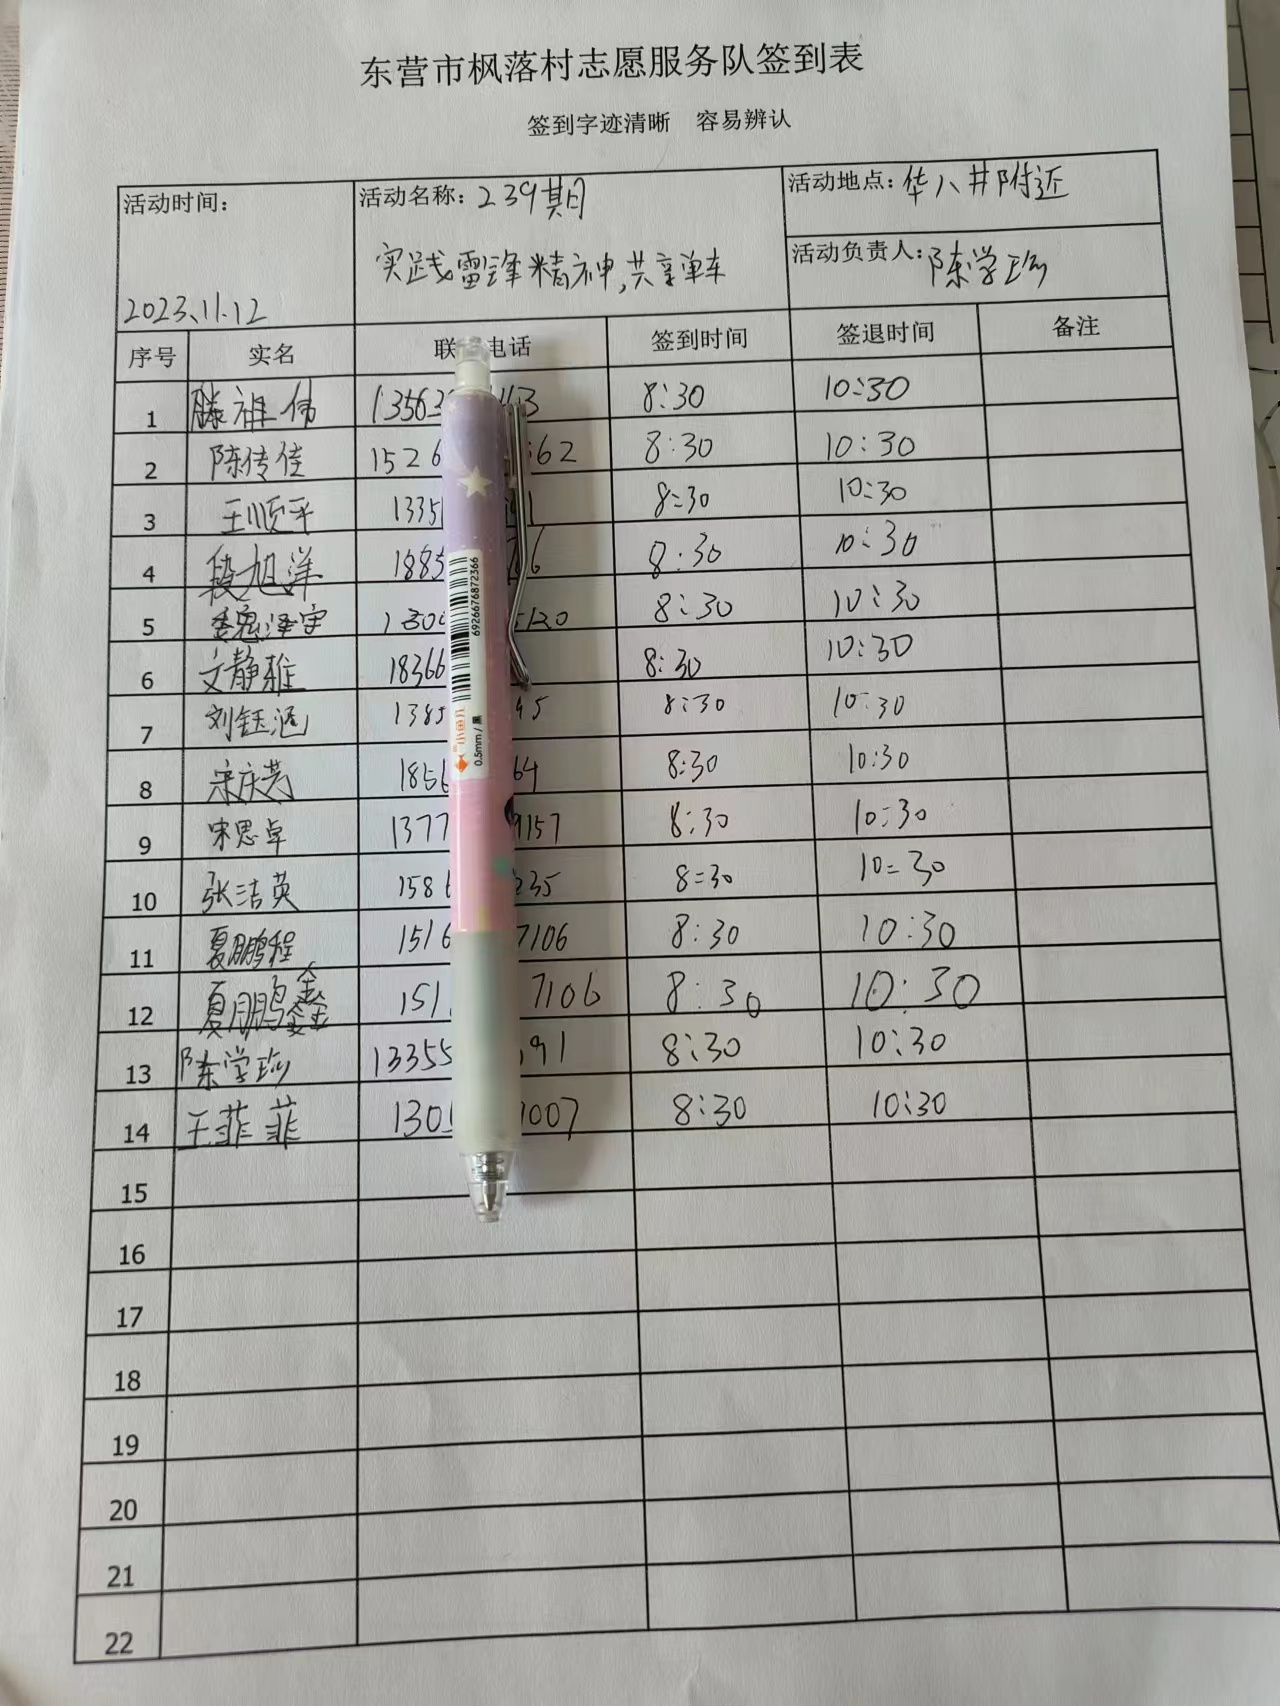 东营市枫落村志愿服务队签到表
签到字迹清晰 容易辨认
活动时间： 2023.11.12
活动名称：239期
实践雷锋精神,共享单车
活动地点：华八井附近
活动负责人：陈学珍
序号 实名 联 电话 签到时间 签退时间 备注
1 滕祥伟 13563 113 8:30 10:30
2 陈传佳 1526 62 8:30 10:30
3 王顺平 1335 1 8:30 10:30
4 段旭洋 1885 6 8:30 10:30
5 魏泽宇 1300 5120 8:30 10:30
6 文静雅 18366 8:30 10:30
7 刘钰涵 1385 95 8:30 10:30
8 宋庆芳 1856 64 8:30 10:30
9 宋思卓 1377 9157 8:30 10:30
10 张洁英 1586 235 8:30 10:30
11 夏鹏程 1516 7106 8:30 10:30
12 夏鹏鑫 151 7106 8:30 10:30
13 陈学珍 13355 91 8:30 10:30
14 王菲菲 130 1007 8:30 10:30
15
16
17
18
19
20
21
22
6926676872366
0.5mm/黑